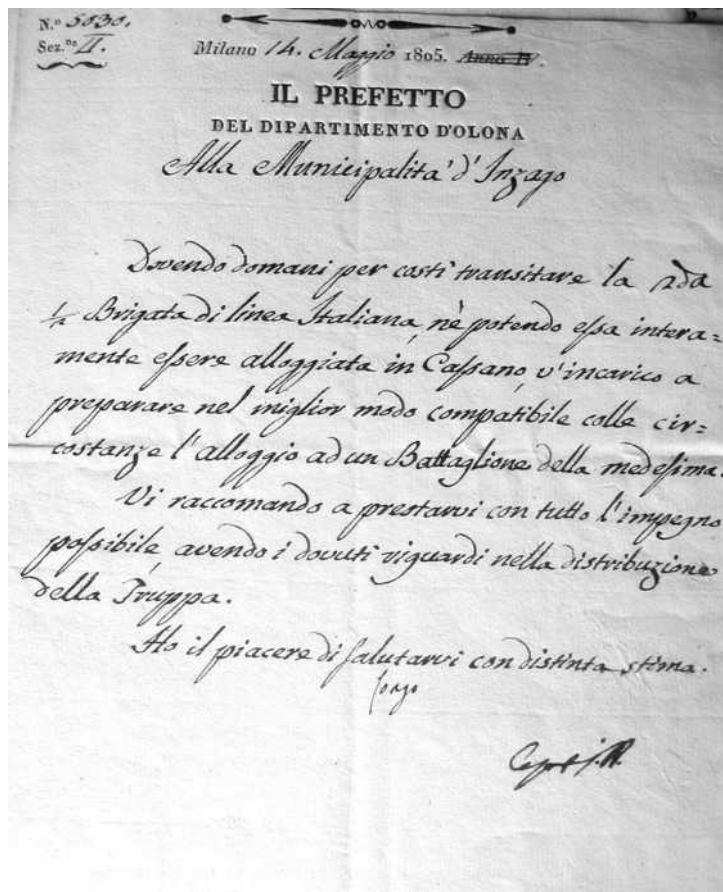 N.º 5030.
Sez.ne II.
Milano 14. Maggio 1805. Anno IV.
IL PREFETTO
DEL DIPARTIMENTO D'OLONA
Alla Municipalita' d'Inzago
Dovendo domani per costì transitare la 2da
1/2 Brigata di linea Italiana, nè potendo essa intera=
mente essere alloggiata in Cassano, v'incarico a
preparare nel miglior modo compatibile colle cir=
costanze l'alloggio ad un Battaglione della medesima.
Vi raccomando a prestarvi con tutto l'impegno
possibile, avendo i dovuti riguardi nella distribuzione
della Truppa.
Ho il piacere di salutarvi con distinta stima.